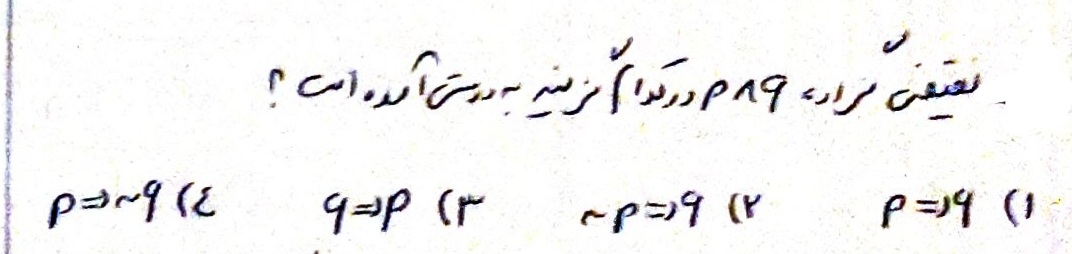 نقیض گزاره p∧q در کدام گزینه به درستی آمده است؟
۱) p⇒q ۲) ~p⇒q ۳) q⇒p ۴) p⇒~q